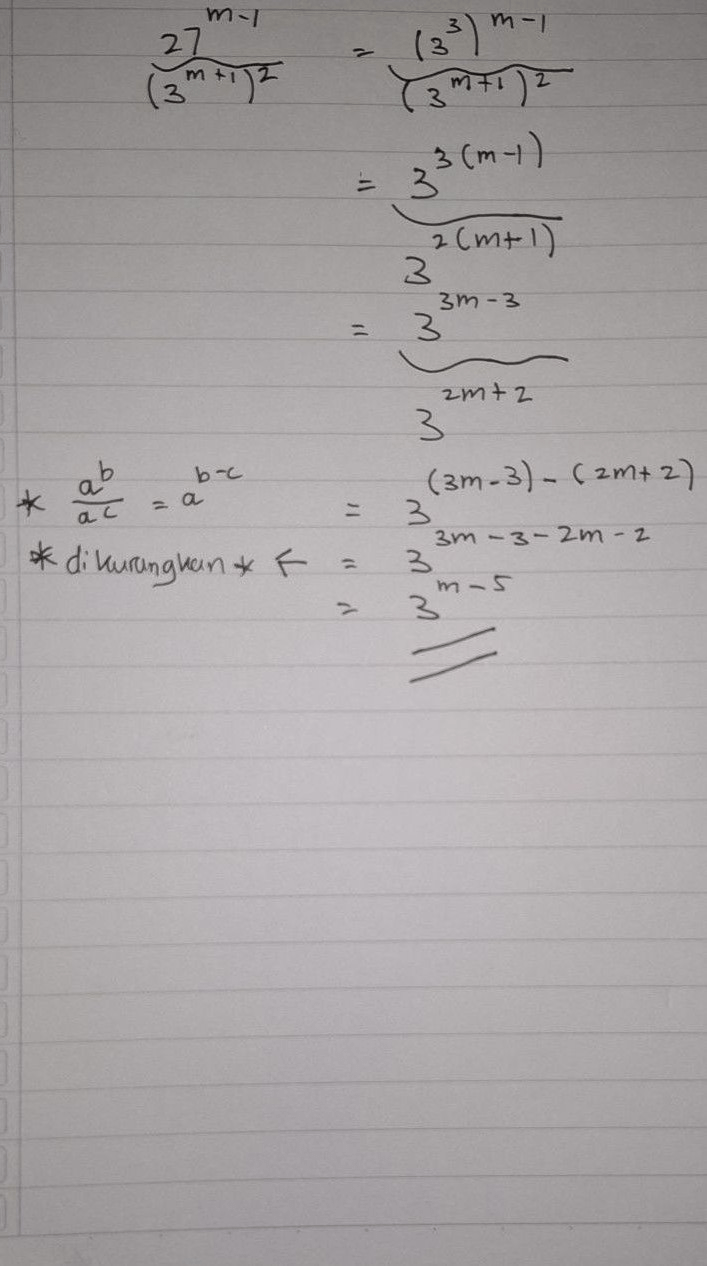 27^(m-1) / (3^(m+1))^2 = (3^3)^(m-1) / (3^(m+1))^2
= 3^(3(m-1)) / 3^(2(m+1))
= 3^(3m-3) / 3^(2m+2)
* a^b / a^c = a^(b-c) = 3^((3m-3)-(2m+2))
* dikurangkan * ← = 3^(3m-3-2m-2)
= 3^(m-5)